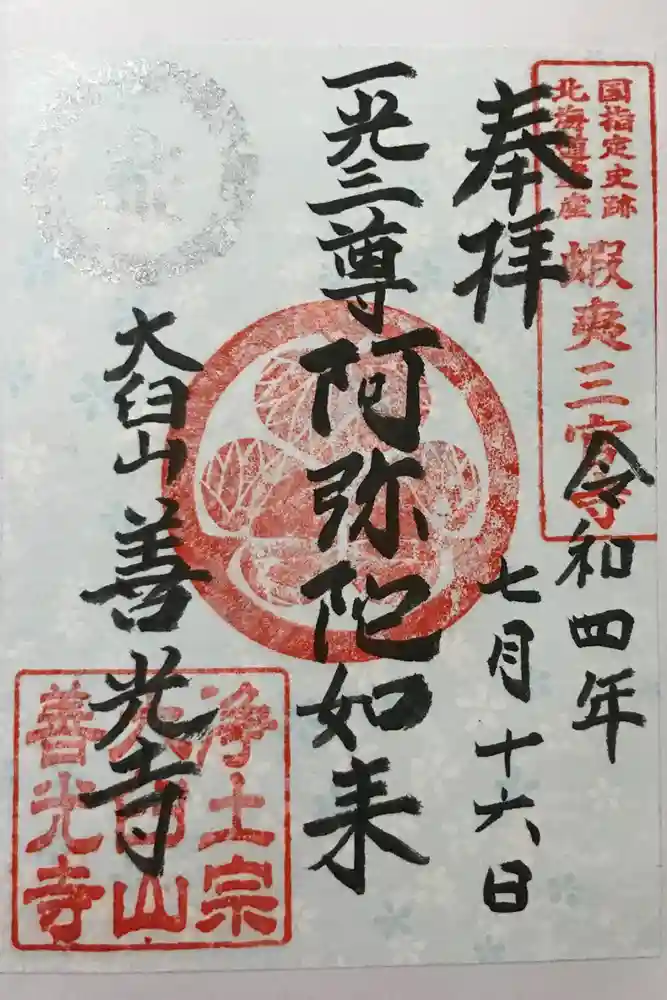 国指定史跡
北海道遺産
蝦夷三官寺
奉拝
令和四年
七月十六日
一光三尊阿弥陀如来
大臼山
善光寺
浄土宗
大臼山
善光寺